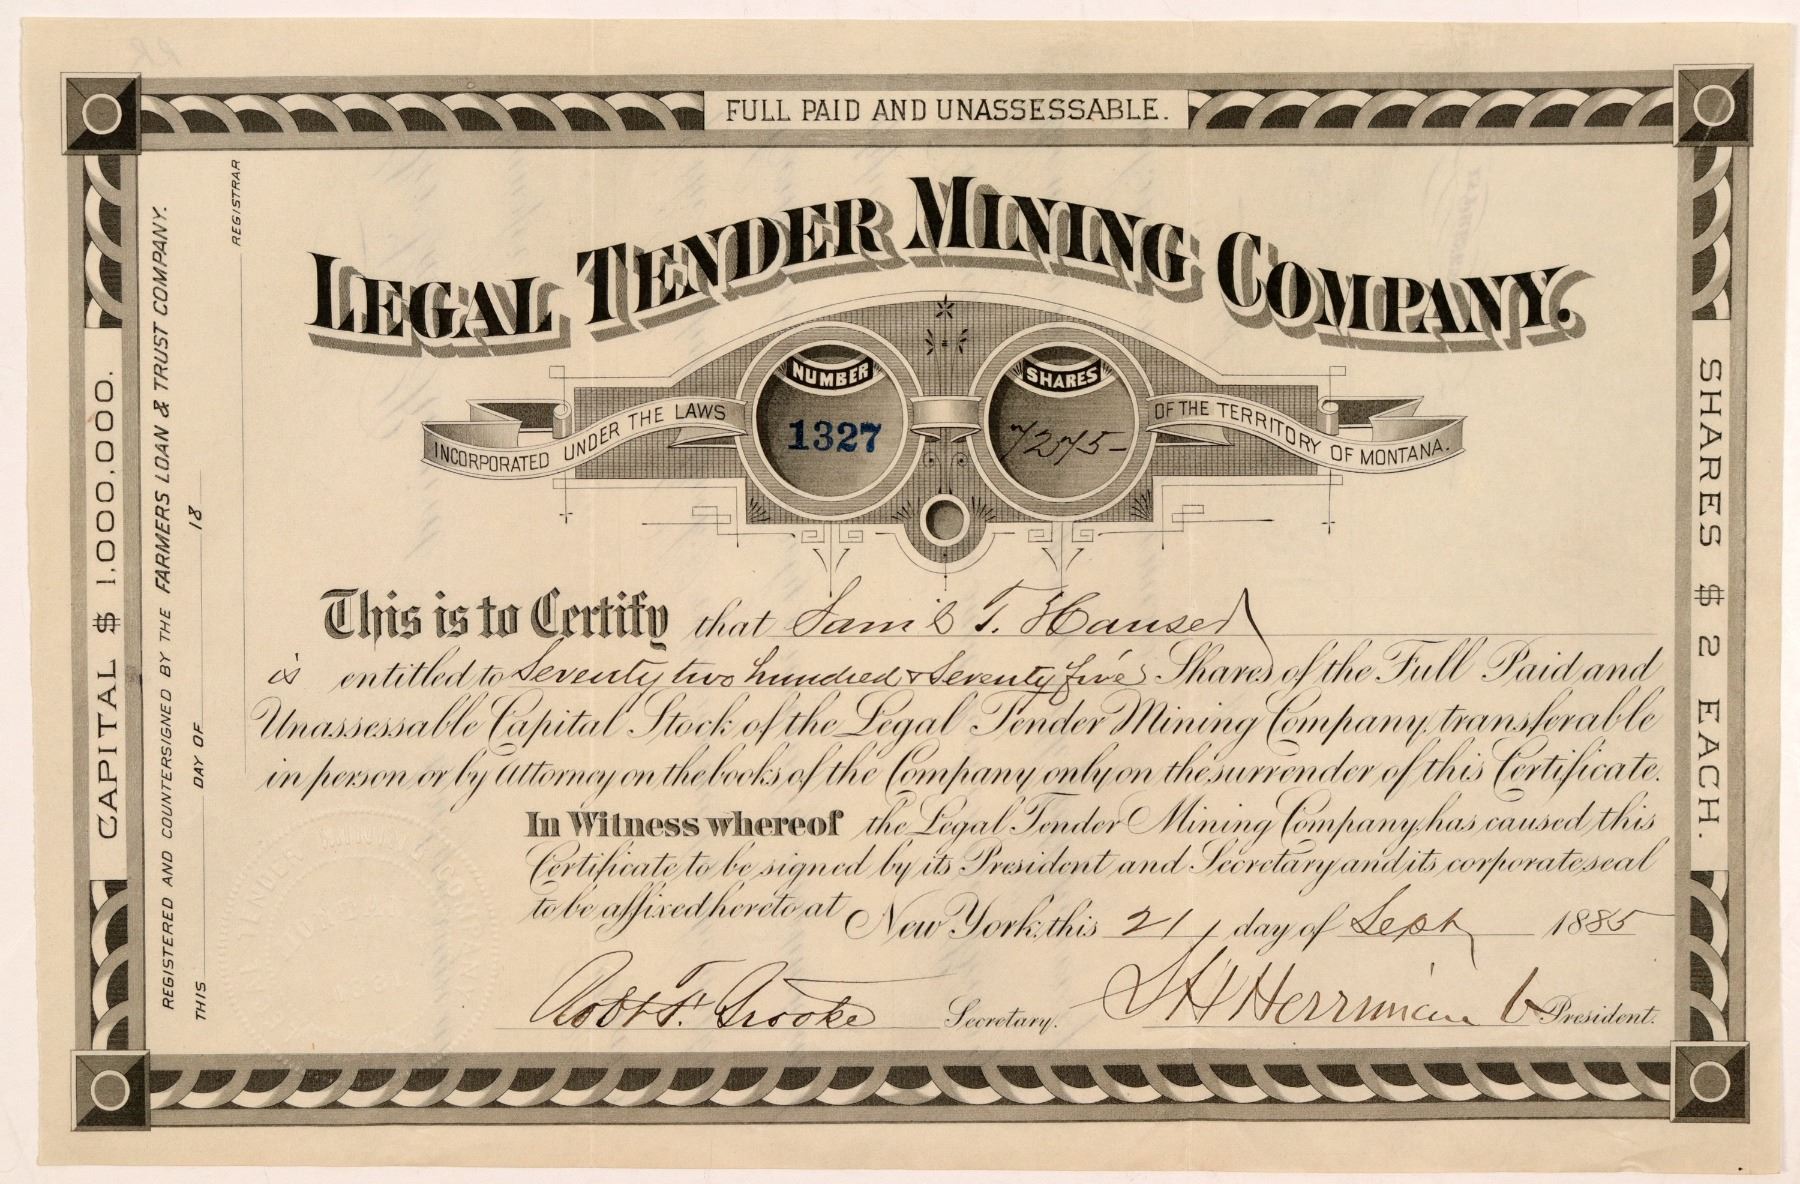 FULL PAID AND UNASSESSABLE.
LEGAL TENDER MINING COMPANY.
NUMBER
1327
SHARES
7275-
INCORPORATED UNDER THE LAWS
OF THE TERRITORY OF MONTANA.
CAPITAL $ 1,000,000.
REGISTERED AND COUNTERSIGNED BY THE FARMERS LOAN & TRUST COMPANY.
THIS DAY OF 18
REGISTRAR
SHARES $ 2 EACH.
This is to Certify that Sam'l T. Hauser
is entitled to Seventy two hundred & Seventy five Shares of the Full Paid and
Unassessable Capital Stock of the Legal Tender Mining Company, transferable
in person or by Attorney on the books of the Company only on the surrender of this Certificate.
In Witness whereof the Legal Tender Mining Company, has caused this
Certificate to be signed by its President and Secretary and its corporate seal
to be affixed hereto at New York, this 21 day of Sept 1885
Secretary.
Herriman V President.